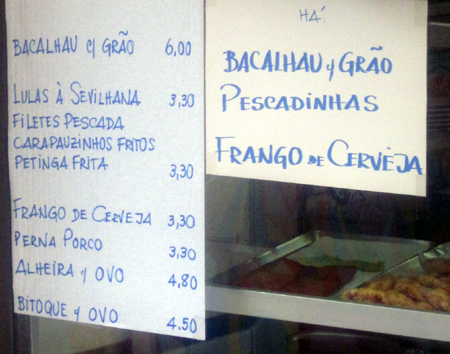 BACALHAU c/ GRÃO 6,00
LULAS À SEVILHANA 3,30
FILETES PESCADA
CARAPAUZINHOS FRITOS
PETINGA FRITA 3,30
FRANGO DE CERVEJA 3,30
PERNA PORCO 3,30
ALHEIRA c/ OVO 4,80
BITOQUE c/ OVO 4.50
HÁ:
BACALHAU c/ GRÃO
PESCADINHAS
FRANGO DE CERVEJA